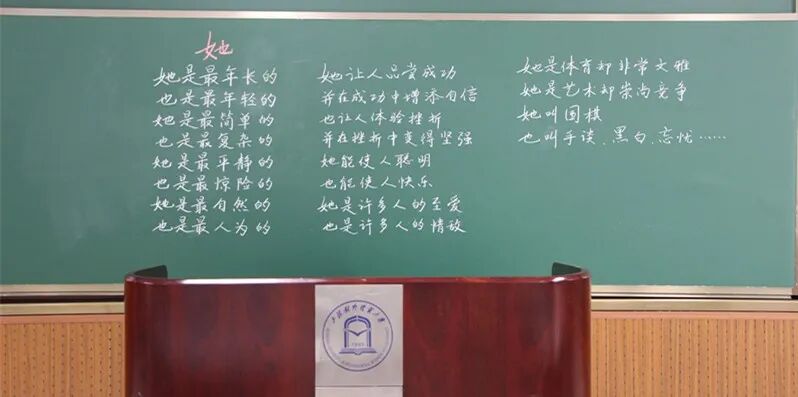 她
她是最年长的
也是最年轻的
她是最简单的
也是最复杂的
她是最平静的
也是最惊险的
她是最自然的
也是最人为的
她让人品尝成功
并在成功中增添自信
也让人体验挫折
并在挫折中变得坚强
她能使人聪明
也能使人快乐
她是许多人的至爱
也是许多人的情敌
她是体育却非常文雅
她是艺术却崇尚竞争
她叫围棋
也叫手谈、黑白、忘忧……